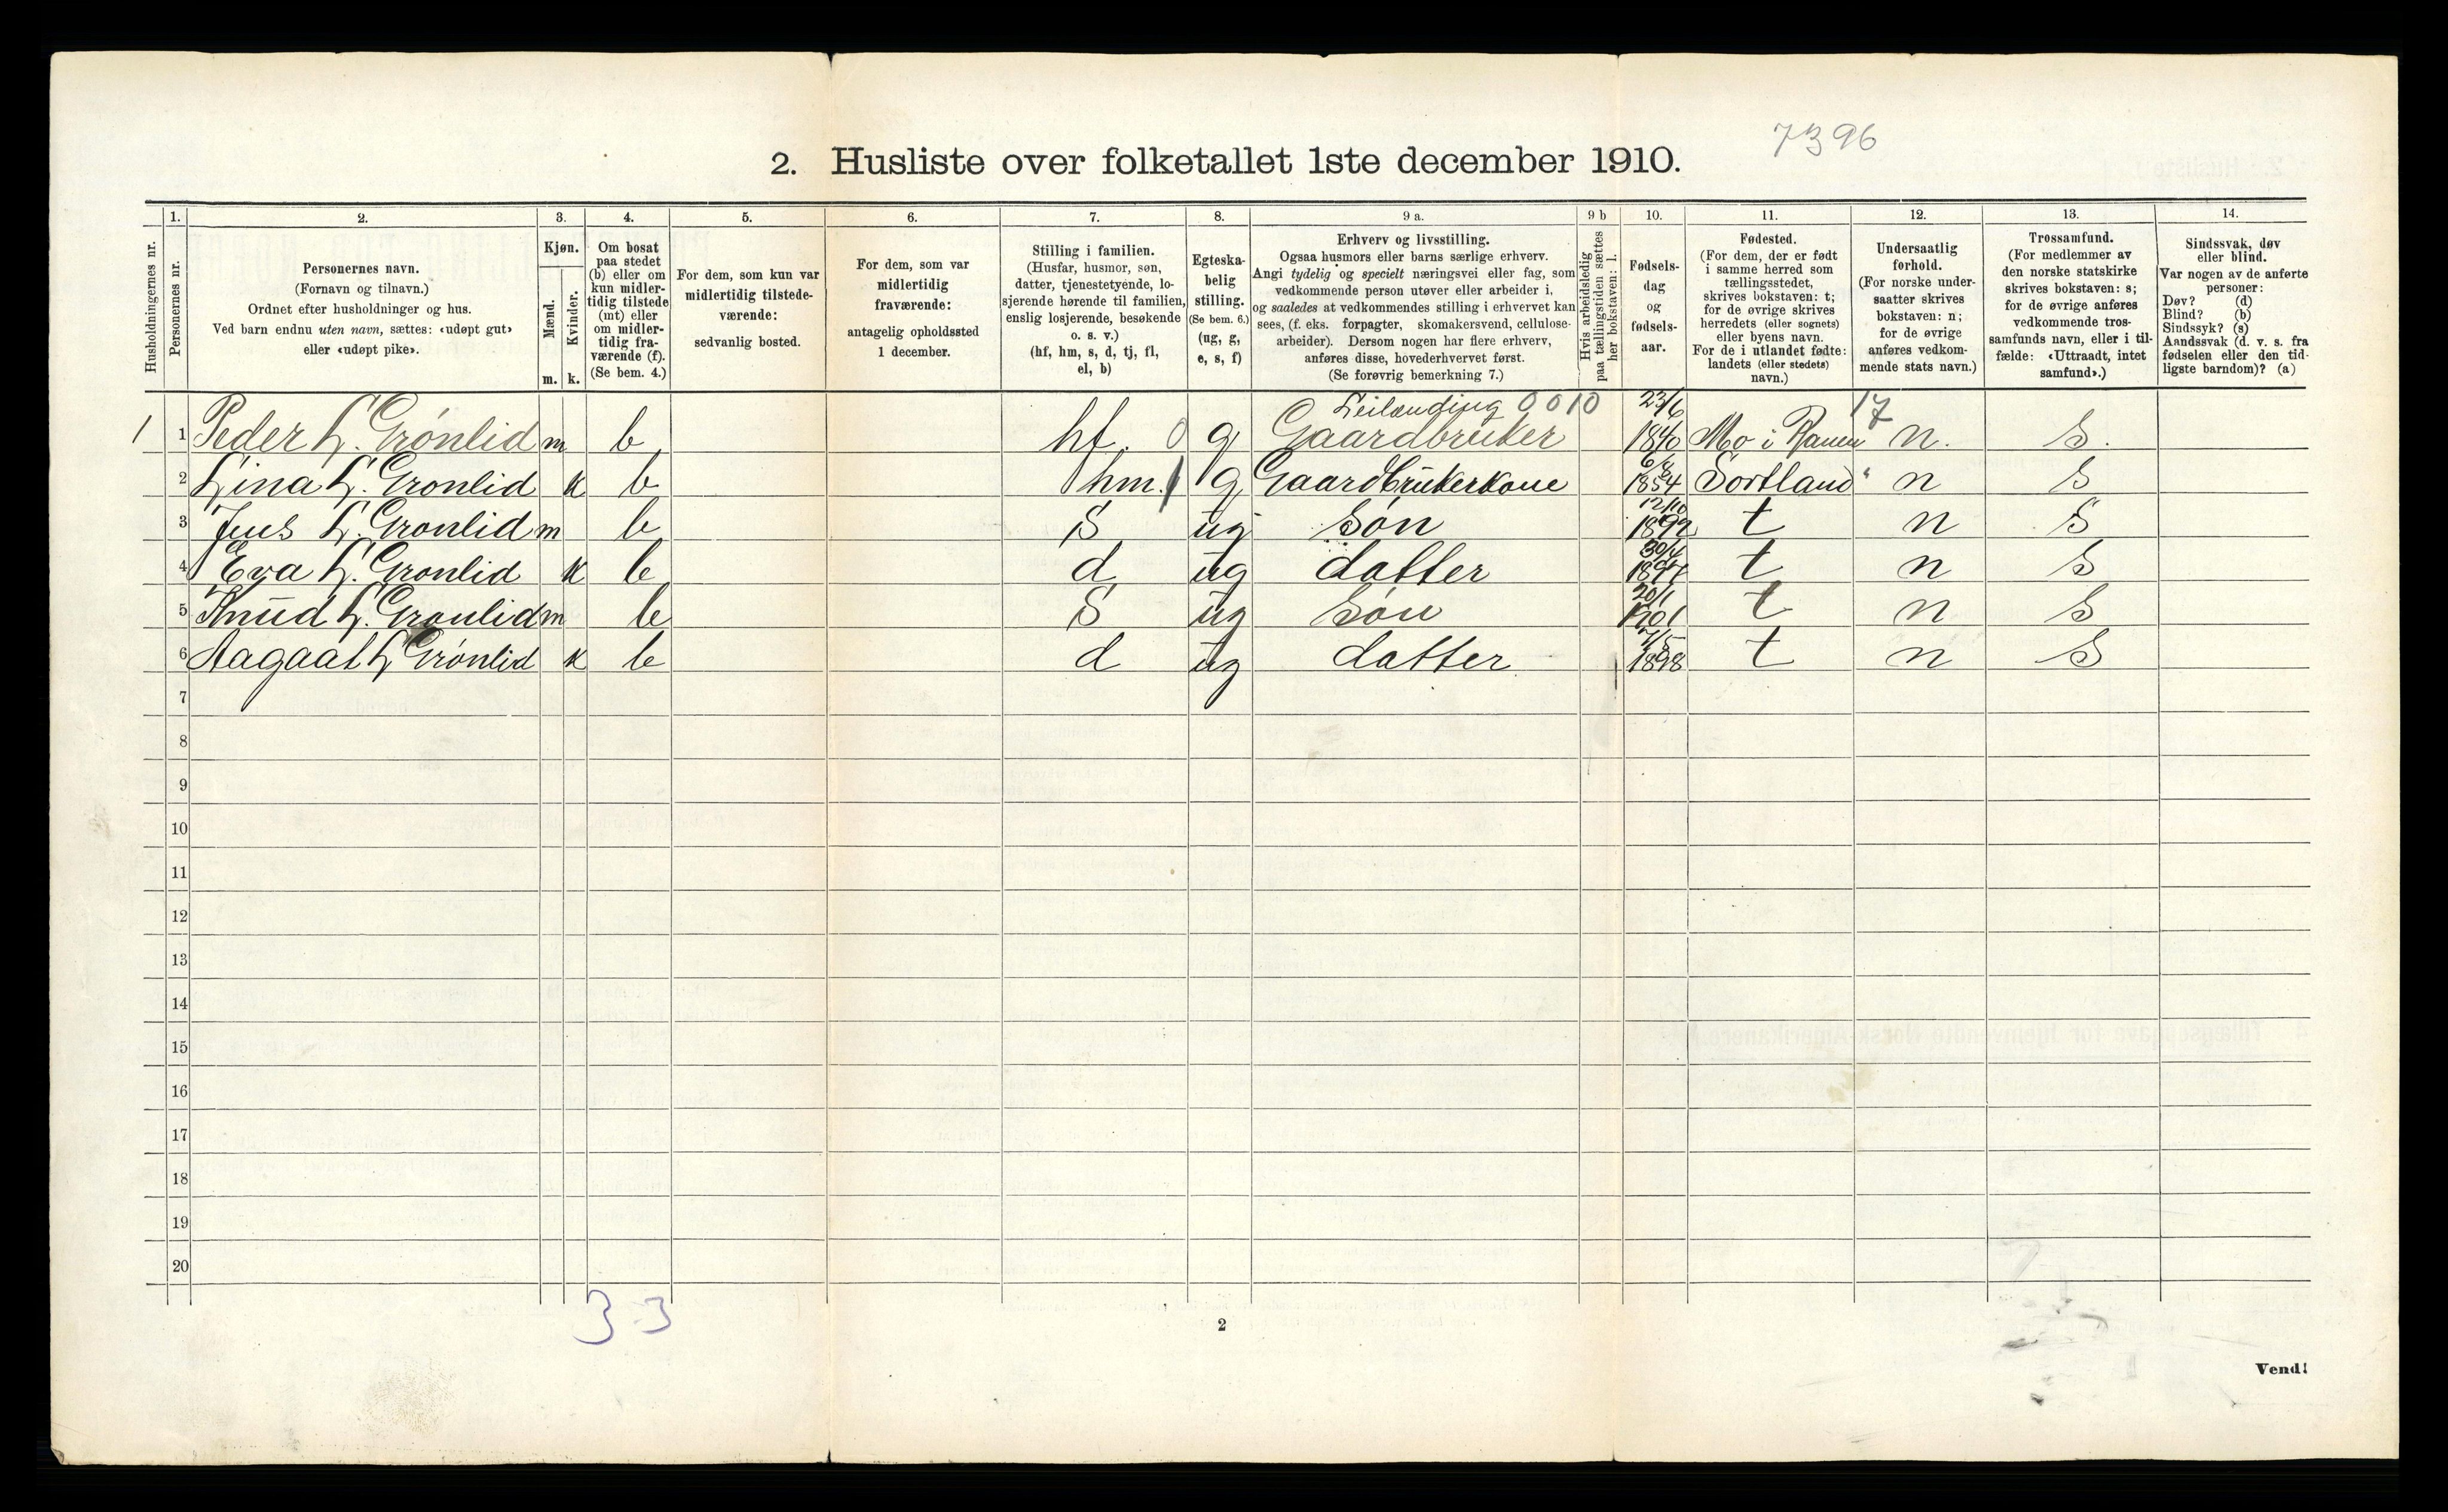 7396
2. Husliste over folketallet 1ste december 1910.
1. 2. 3. 4. 5. 6. 7. 8. 9 a. 9 b 10. 11. 12. 13. 14.
Husholdningernes nr.
Personernes nr.
Personernes navn.
(Fornavn og tilnavn.)
Ordnet efter husholdninger og hus.
Ved barn endnu uten navn, sættes: «udøpt gut»
eller «udøpt pike».
Kjøn.
Mænd.
Kvinder.
m. k.
Om bosat
paa stedet
(b) eller om
kun midler-
tidig tilstede
(mt) eller
om midler-
tidig fra-
værende (f).
(Se bem. 4.)
For dem, som kun var
midlertidig tilstede-
værende:
sedvanlig bosted.
For dem, som var
midlertidig
fraværende:
antagelig opholdssted
1 december.
Stilling i familien.
(Husfar, husmor, søn,
datter, tjenestetyende, lo-
sjerende hørende til familien,
enslig losjerende, besøkende
o. s. v.)
(hf, hm, s, d, tj, fl,
el, b)
Egteska-
belig
stilling.
(Se bem. 6.)
(ug, g,
e, s, f)
Erhverv og livsstilling.
Ogsaa husmors eller barns særlige erhverv.
Angi tydelig og specielt næringsvei eller fag, som
vedkommende person utøver eller arbeider i,
og saaledes at vedkommendes stilling i erhvervet kan
sees, (f. eks. forpagter, skomakersvend, cellulose-
arbeider). Dersom nogen har flere erhverv,
anføres disse, hovederhvervet først.
(Se forøvrig bemerkning 7.)
Hvis arbeidsledig
paa tællingstiden sættes
her bokstaven: l.
Fødsels-
dag
og
fødsels-
aar.
Fødested.
(For dem, der er født
i samme herred som
tællingsstedet,
skrives bokstaven: t;
for de øvrige skrives
herredets (eller sognets)
eller byens navn.
For de i utlandet fødte:
landets (eller stedets)
navn.)
Undersaatlig
forhold.
(For norske under-
saatter skrives
bokstaven: n;
for de øvrige
anføres vedkom-
mende stats navn.)
Trossamfund.
(For medlemmer av
den norske statskirke
skrives bokstaven: s;
for de øvrige anføres
vedkommende tros-
samfunds navn, eller i til-
fælde: «Uttraadt, intet
samfund».)
Sindssvak, døv
eller blind.
Var nogen av de anførte
personer:
Døv? (d)
Blind? (b)
Sindssyk? (s)
Aandssvak (d. v. s. fra
fødselen eller den tid-
ligste barndom)? (a)
Leilænding 0010 23/6 17
1 1 Peder L. Grønlid m b hf. 0 g Gaardbruker 1840 Mo i Ranen n. s.
6/8
2 Lina L. Gronlid k b hm. 1 g Gaardbrukerkone 1854 Sortland " n s
12/10
3 Jens L. Gronlid m b s ug søn 1892 t n s
30/4
4 Eva L. Gronlid k b d ug datter t n s
20/1
5 Knud L. Gronlid m b s ug søn 1901 t n s
6 Aagaat L Grønlid k b d ug datter 1898 t n s
7
8
9
10
11
12
13
14
15
16
17
18
19
20
3 3
2
Vend!